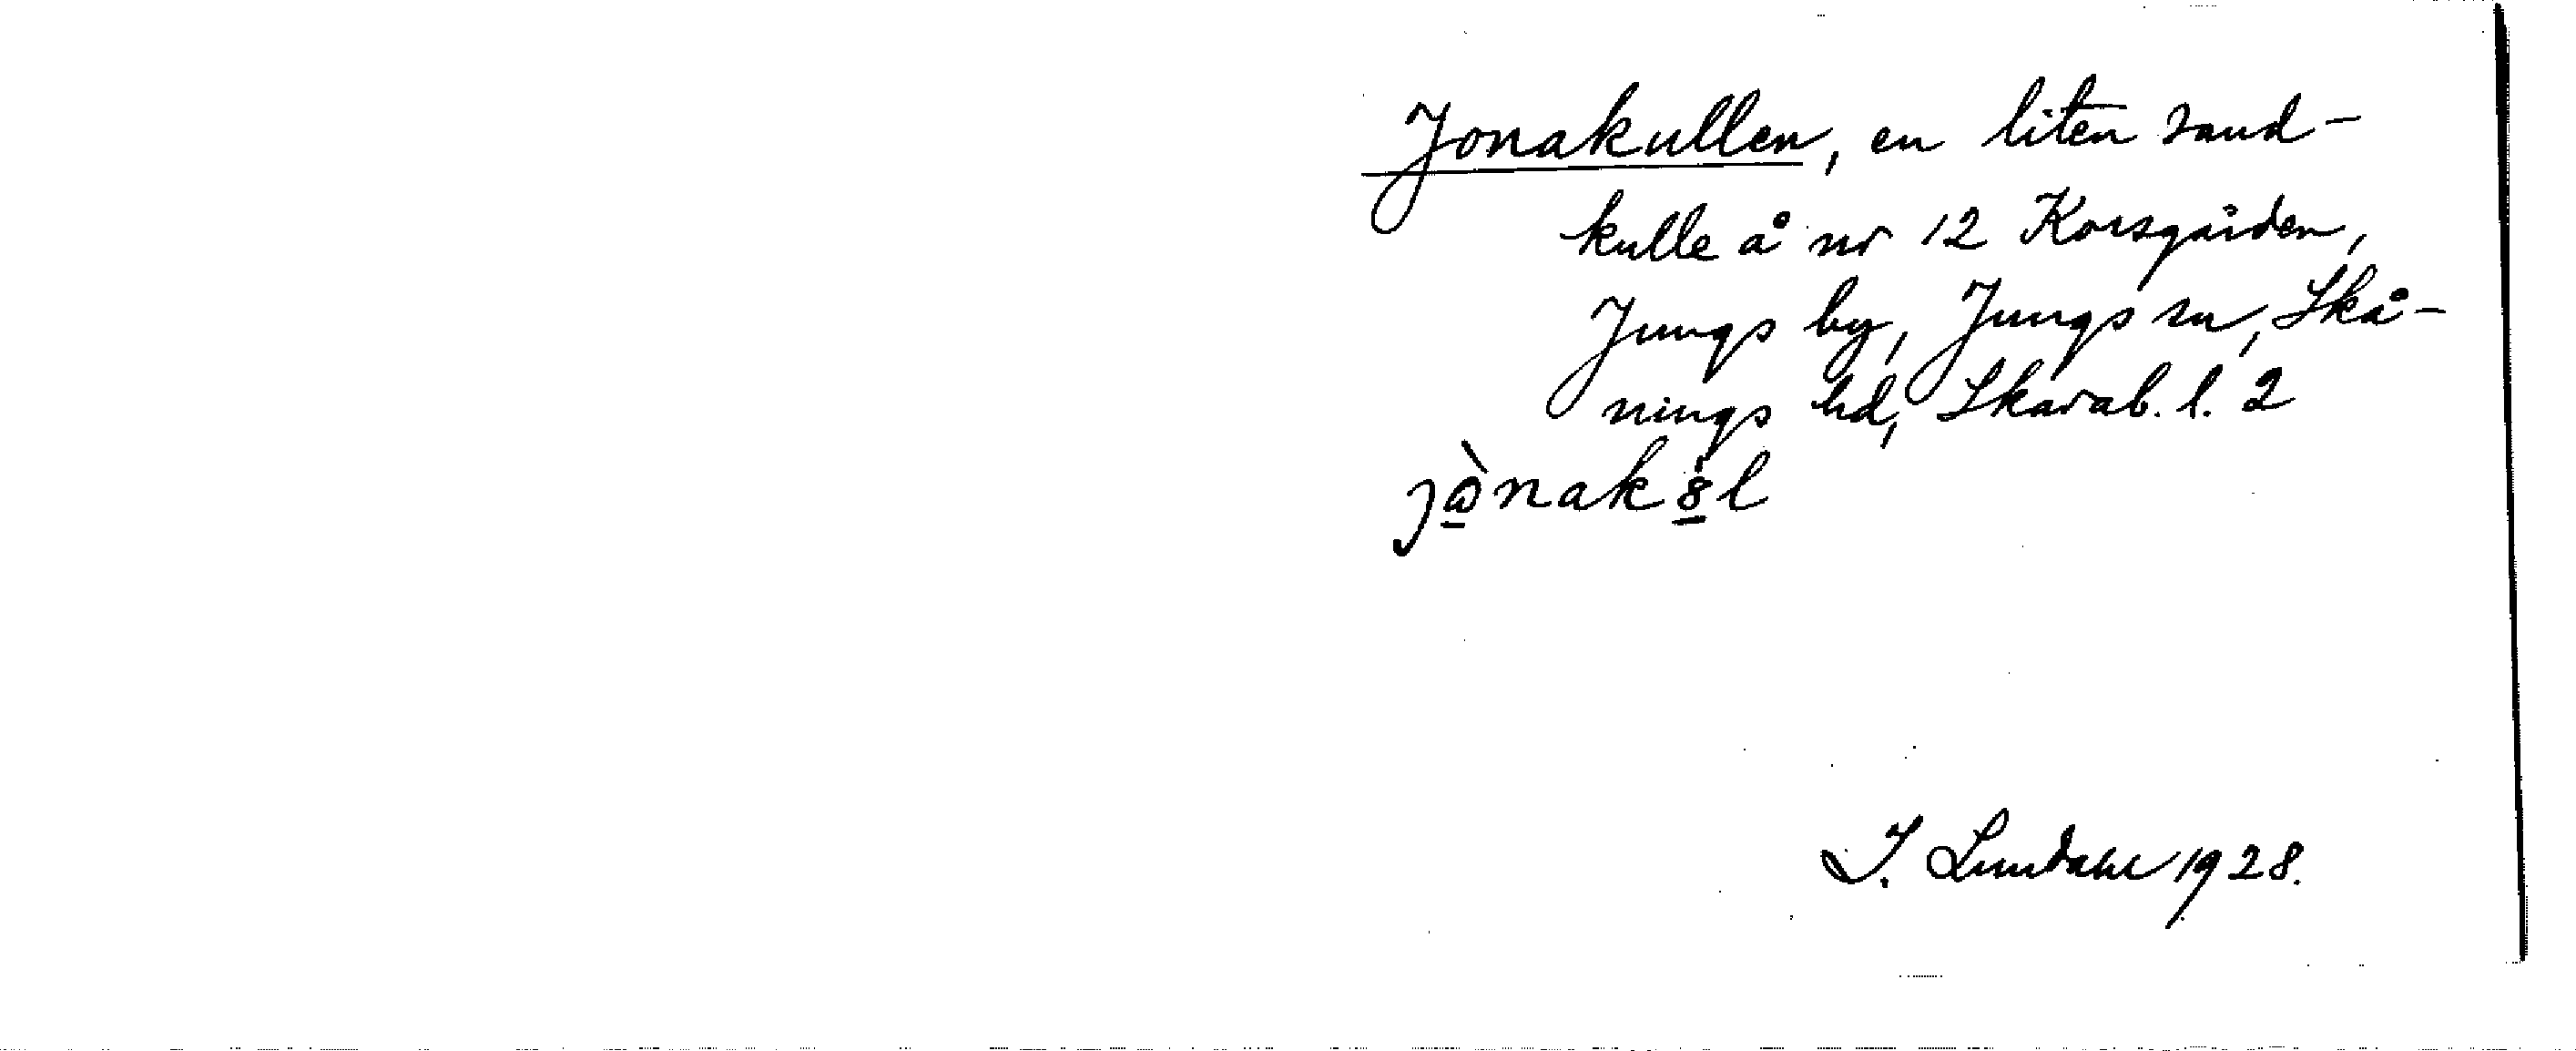 Jonakullen, en liten sand-
kulle å nr 12 Korsgården,
Jungs by, Jungs sn, Skå-
nings hd, Skarab. l. 2
I. Lundahl 1928.